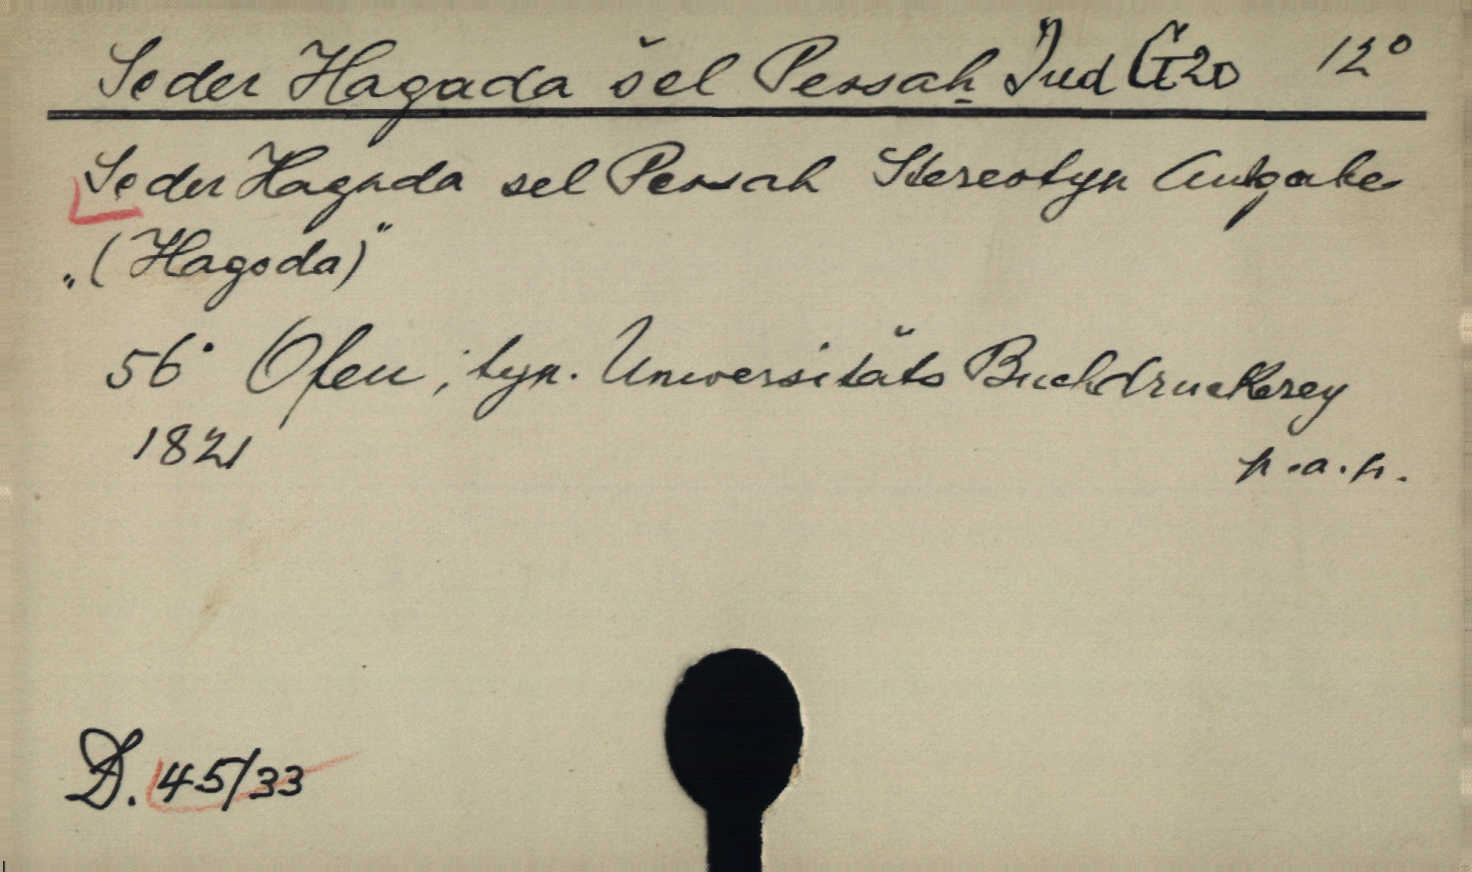 Seder Hagada šel Pessaḥ Jud G 20 12°
Seder Hagada sel Pessah Stereotyp Ausgabe
„(Hagoda)"
56° Ofen; typ. Universitäts Buchdruckerey
1821 p.a.p.
D. 45/33